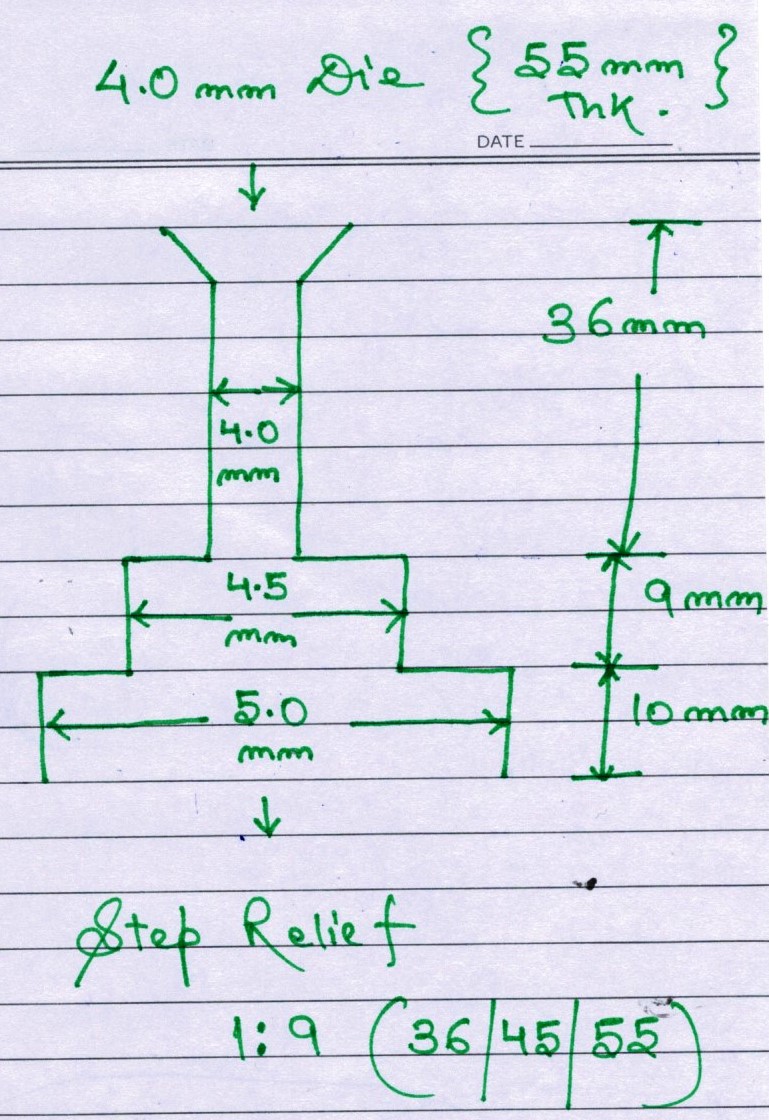 4.0 mm Die { 55 mm
Thk. }
DATE
36 mm
4.0
mm
4.5
mm
9 mm
5.0
mm
10 mm
Step Relief
1:9 (36/45/55)